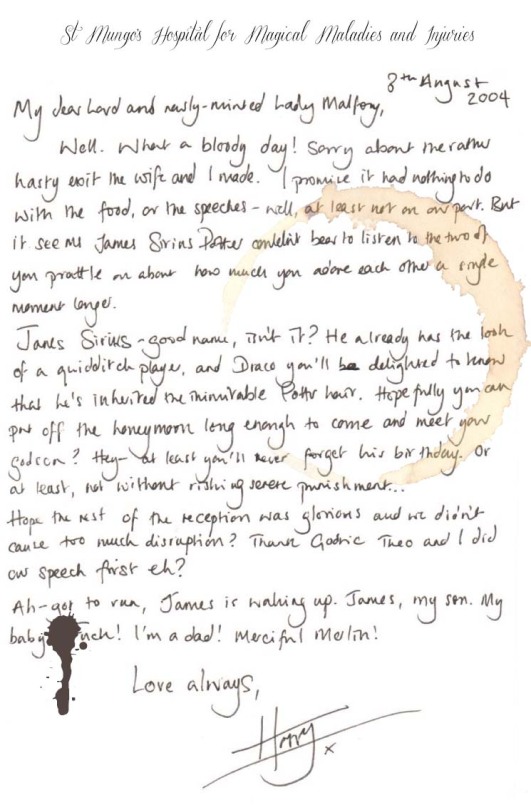 St Mungo's Hospital for Magical Maladies and Injuries
8th August
2004
My dear Lord and newly-minted Lady Malfoy,
Well. What a bloody day! Sorry about the rather
hasty exit the wife and I made. I promise it had nothing to do
with the food, or the speeches - well, at least not on our part. But
it seems James Sirius Potter couldn't bear to listen to the two of
you prattle on about how much you adore each other a single
moment longer.
James Sirius - good name, isn't it? He already has the look
of a quidditch player, and Draco you'll be delighted to know
that he's inherited the inimitable Potter hair. Hopefully you can
put off the honeymoon long enough to come and meet your
godson? Hey- at least you'll never forget his birthday. Or
at least, not without risking severe punishment...
Hope the rest of the reception was glorious and we didn't
cause too much disruption? Thank Godric Theo and I did
our speech first eh?
Ah- got to run, James is waking up. James, my son. My
baby! I'm a dad! Merciful Merlin!
Love always,
Harry
x